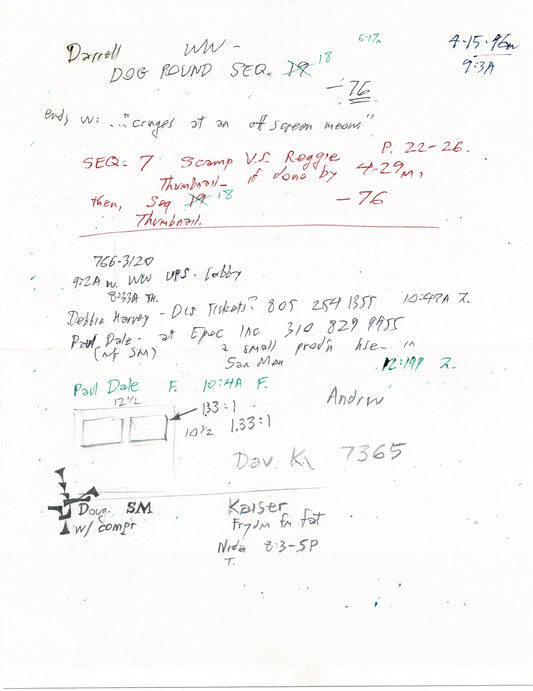 Darrell WW - 6-17a 4-15-96m
9:3A
DOG POUND SEQ. 19 18
-76
ends W: ... "cringes at an off screen meows"
SEQ. 7 Scamp V.S. Reggie P. 22-26.
Thumbnail- if done by 4-29m,
then, Seq 19 18 -76
Thumbnail.
766-3120
9:2A m. WW UPS. Lobby
8:33A TH.
Debbie Harvey - Dis Tickets? 805 254 1355
Paul Dale - at Epoc Inc 310 829 9955
(nf SM) a small prod'n hse - in
San Mon
Paul Dale F. 10:4A F.
12 1/2
1.33:1 Andrew
10 1/2 1.33:1
Dav. K 7365
Doug. SM Kaiser
w/ compr Frydm fn fat
Nida 8:3-5P
T.